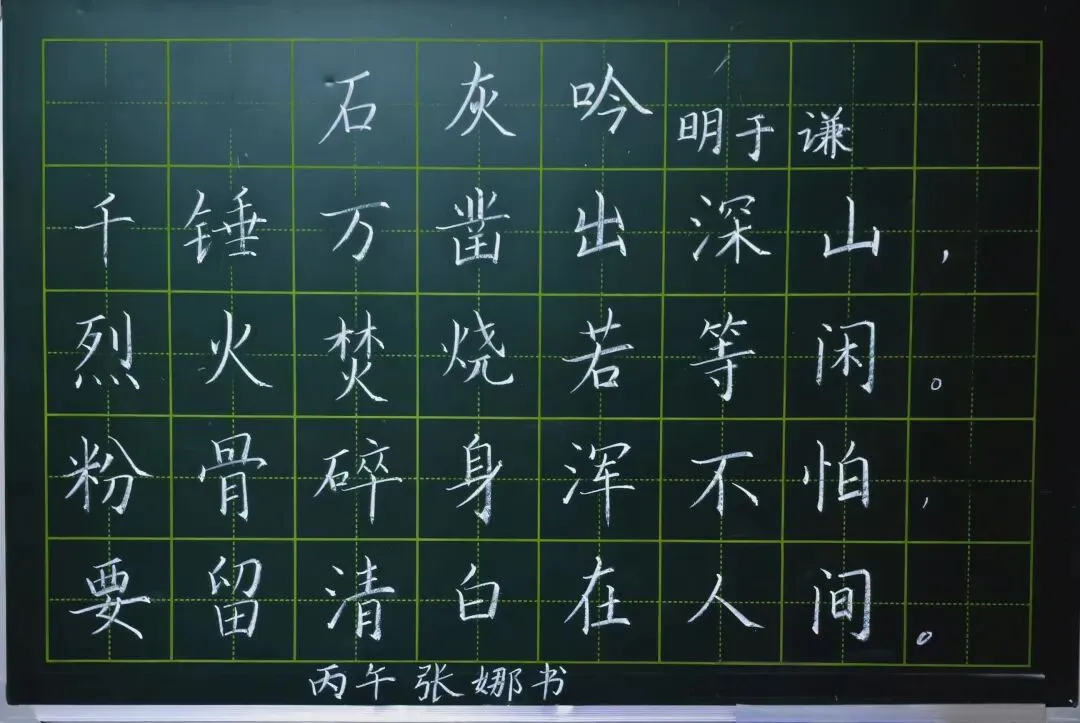 石灰吟 明于谦
千锤万凿出深山，
烈火焚烧若等闲。
粉骨碎身浑不怕，
要留清白在人间。
丙午张娜书